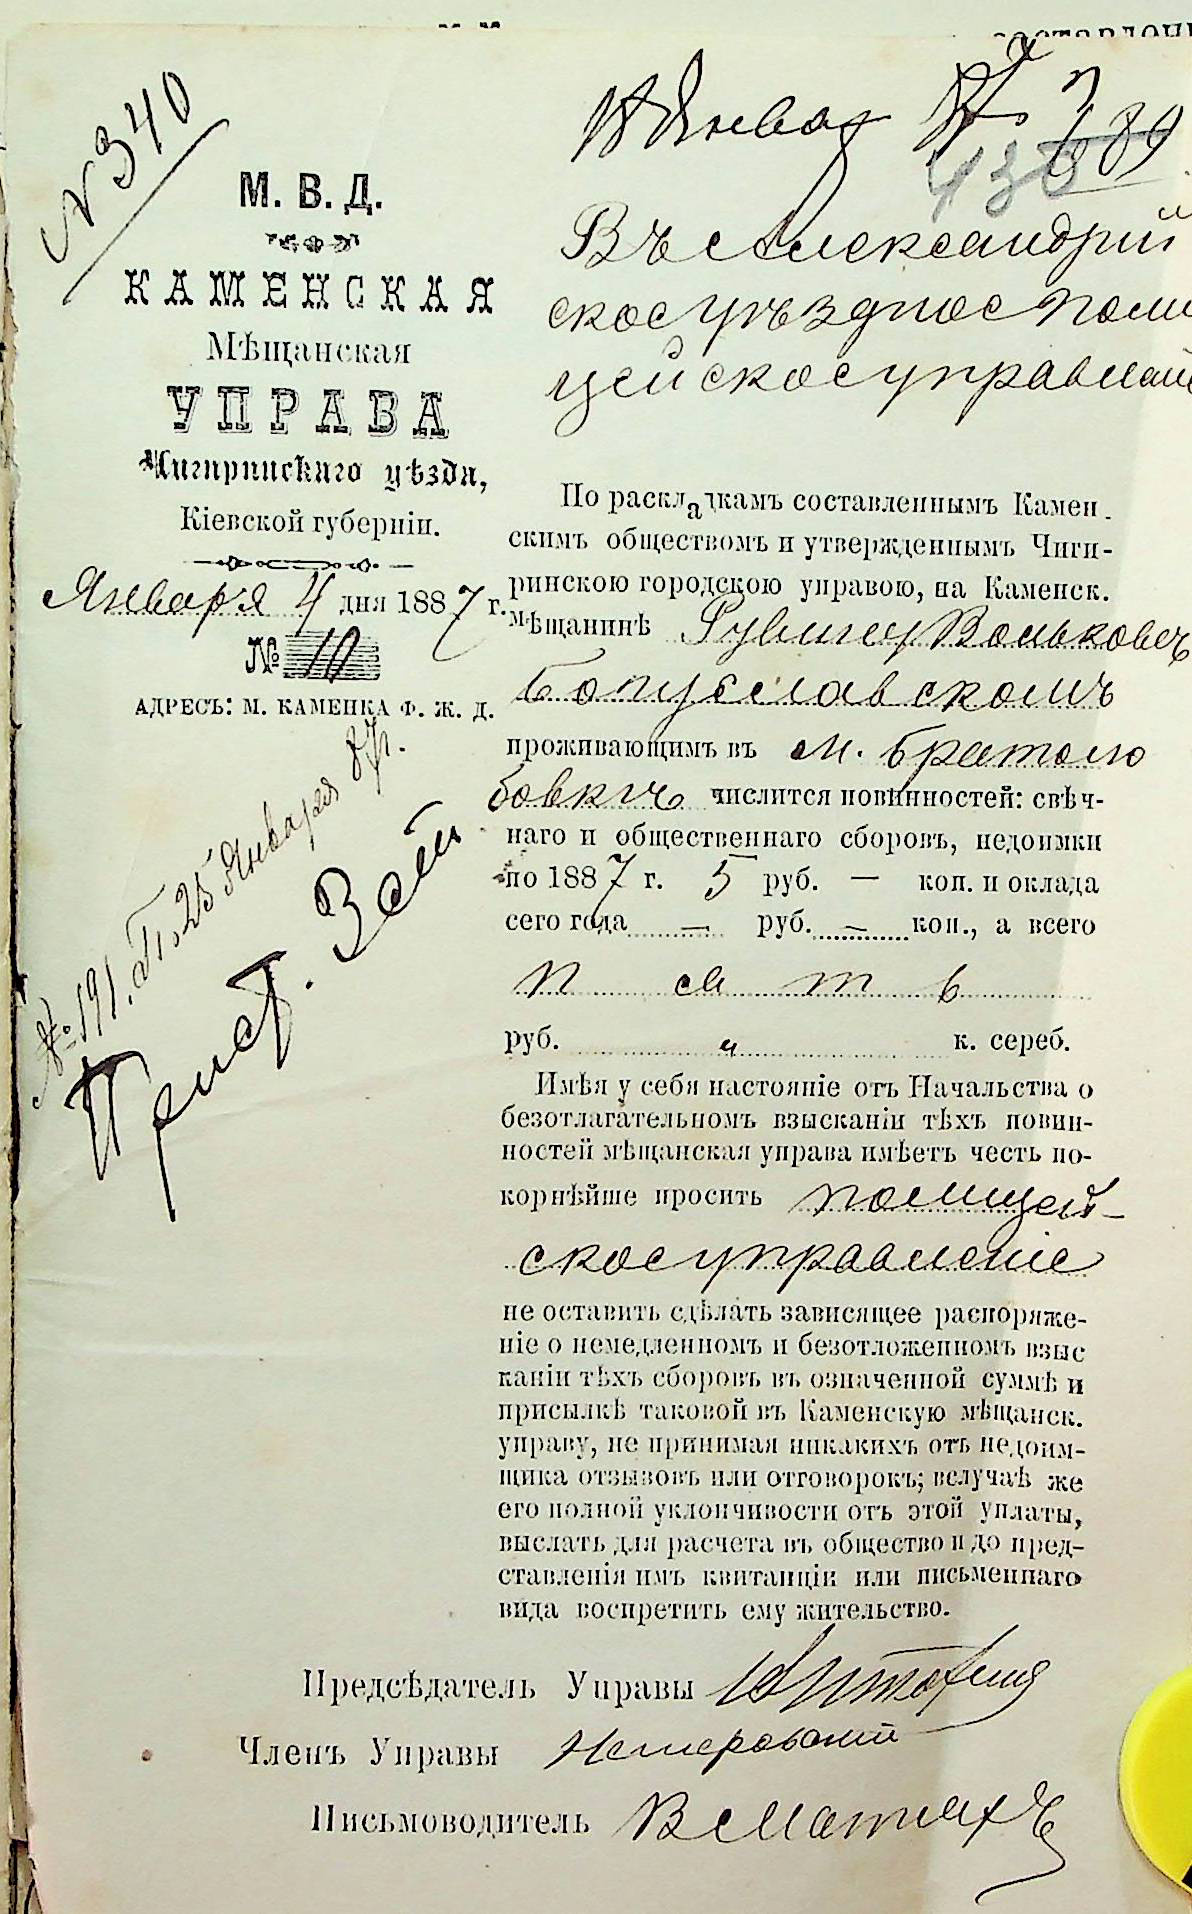 № 340
М. В. Д.
КАМЕНСКАЯ
Мѣщанская
УПРАВА
Чигиринскаго уѣзда,
Кіевской губерніи.
Января 4 дня 1887 г.
№ 10
АДРЕСЪ: М. КАМЕНКА Ф. Ж. Д.
№ 191. П. 25 Января 87 г.
Прист. 3 ст.
Январ 87
430
Въ Александрій
ское уѣздное поли
цейское управлені
По раскладкамъ составленнымъ Камен.
скимъ обществомъ и утвержденнымъ Чиги-
ринскою городскою управою, на Каменск.
мѣщанинѣ Рувинѣ Вольковѣ
Богуславскомъ
проживающимъ въ м. Братолю
бовкѣ числится повинностей: свѣч-
наго и общественнаго сборовъ, недоимки
по 1887 г. 5 руб. — коп. и оклада
сего года — руб. — коп., а всего
пять
руб. „ к. сереб.
Имѣя у себя настояніе отъ Начальства о
безотлагательномъ взысканіи тѣхъ повин-
ностей мѣщанская управа имѣетъ честь по-
корнѣйше просить полицей-
ское управленіе
не оставить сдѣлать зависящее распоряже-
ніе о немедленномъ и безотложенномъ взыс
каніи тѣхъ сборовъ въ означенной суммѣ и
присылкѣ таковой въ Каменскую мѣщанск.
управу, не принимая никакихъ отъ недоим-
щика отзывовъ или отговорокъ; вслучаѣ же
его полной уклончивости отъ этой уплаты,
выслать для расчета въ общество и до пред-
ставленія имъ квитанціи или письменнаго
вида воспретить ему жительство.
Предсѣдатель Управы
Членъ Управы
Письмоводитель